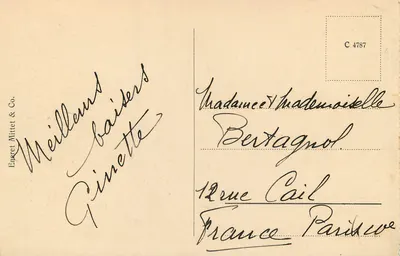 Meilleurs
baisers
Ginette
Engret Mittet & Co.
C 4787
Madame et Mademoiselle
Bertagnol.
12 rue Cail
France Paris